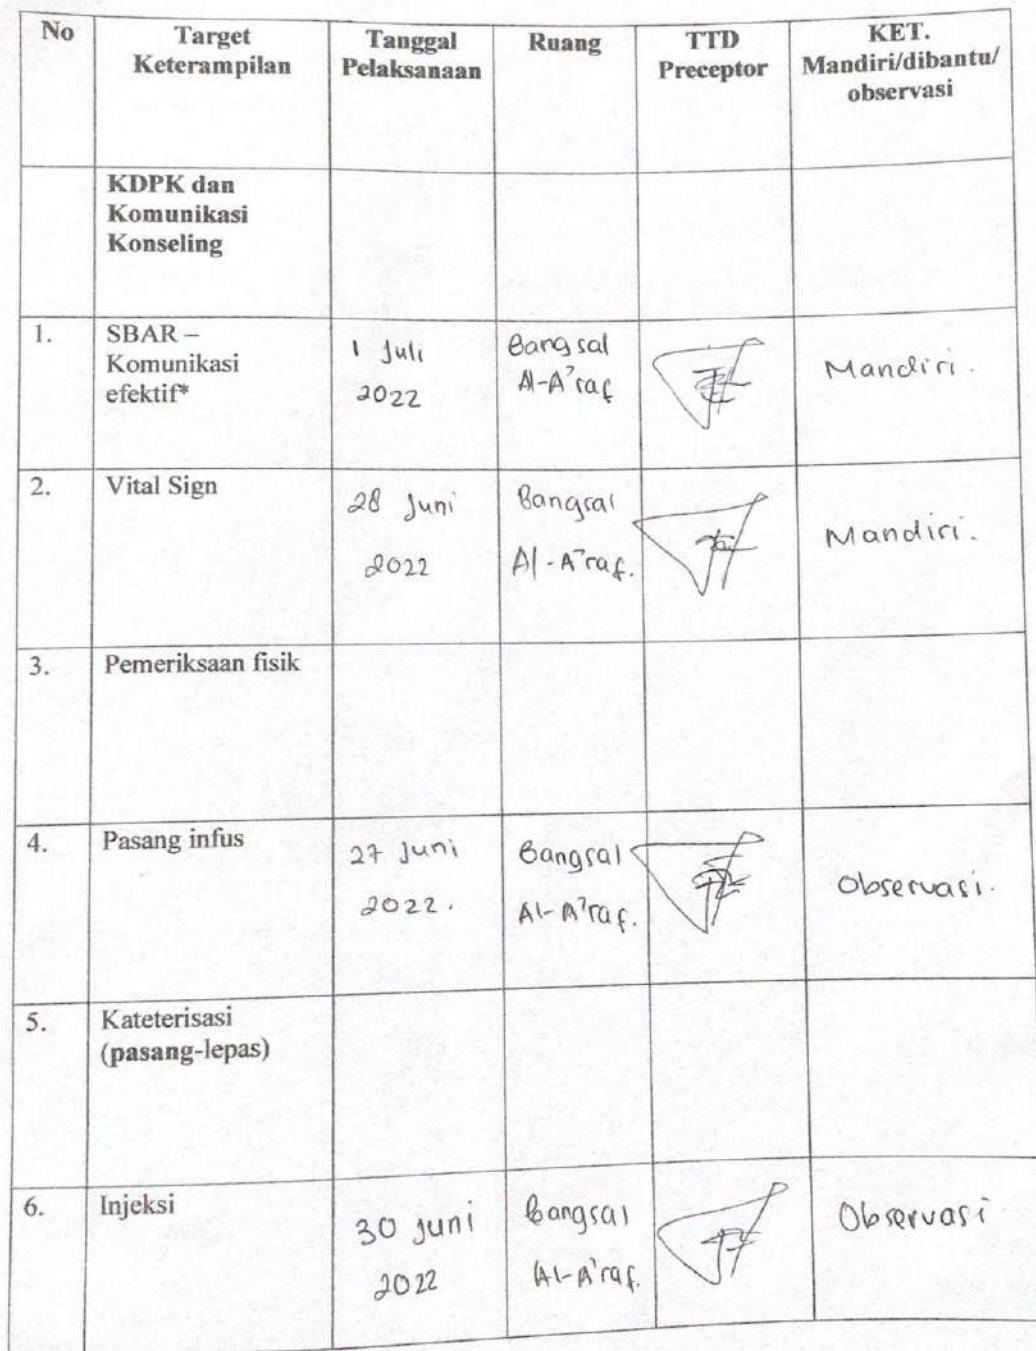 No
Target
Keterampilan
Tanggal
Pelaksanaan
Ruang
TTD
Preceptor
KET.
Mandiri/dibantu/
observasi
KDPK dan
Komunikasi
Konseling
1.
SBAR –
Komunikasi
efektif*
1 Juli
2022
Bangsal
Al-A'raf
Mandiri.
2.
Vital Sign
28 Juni
2022
Bangsal
Al-A'raf.
Mandiri.
3.
Pemeriksaan fisik
4.
Pasang infus
27 Juni
2022.
Bangsal
Al-A'raf.
Observasi.
5.
Kateterisasi
(pasang-lepas)
6.
Injeksi
30 Juni
2022
Bangsal
Al-A'raf.
Observasi